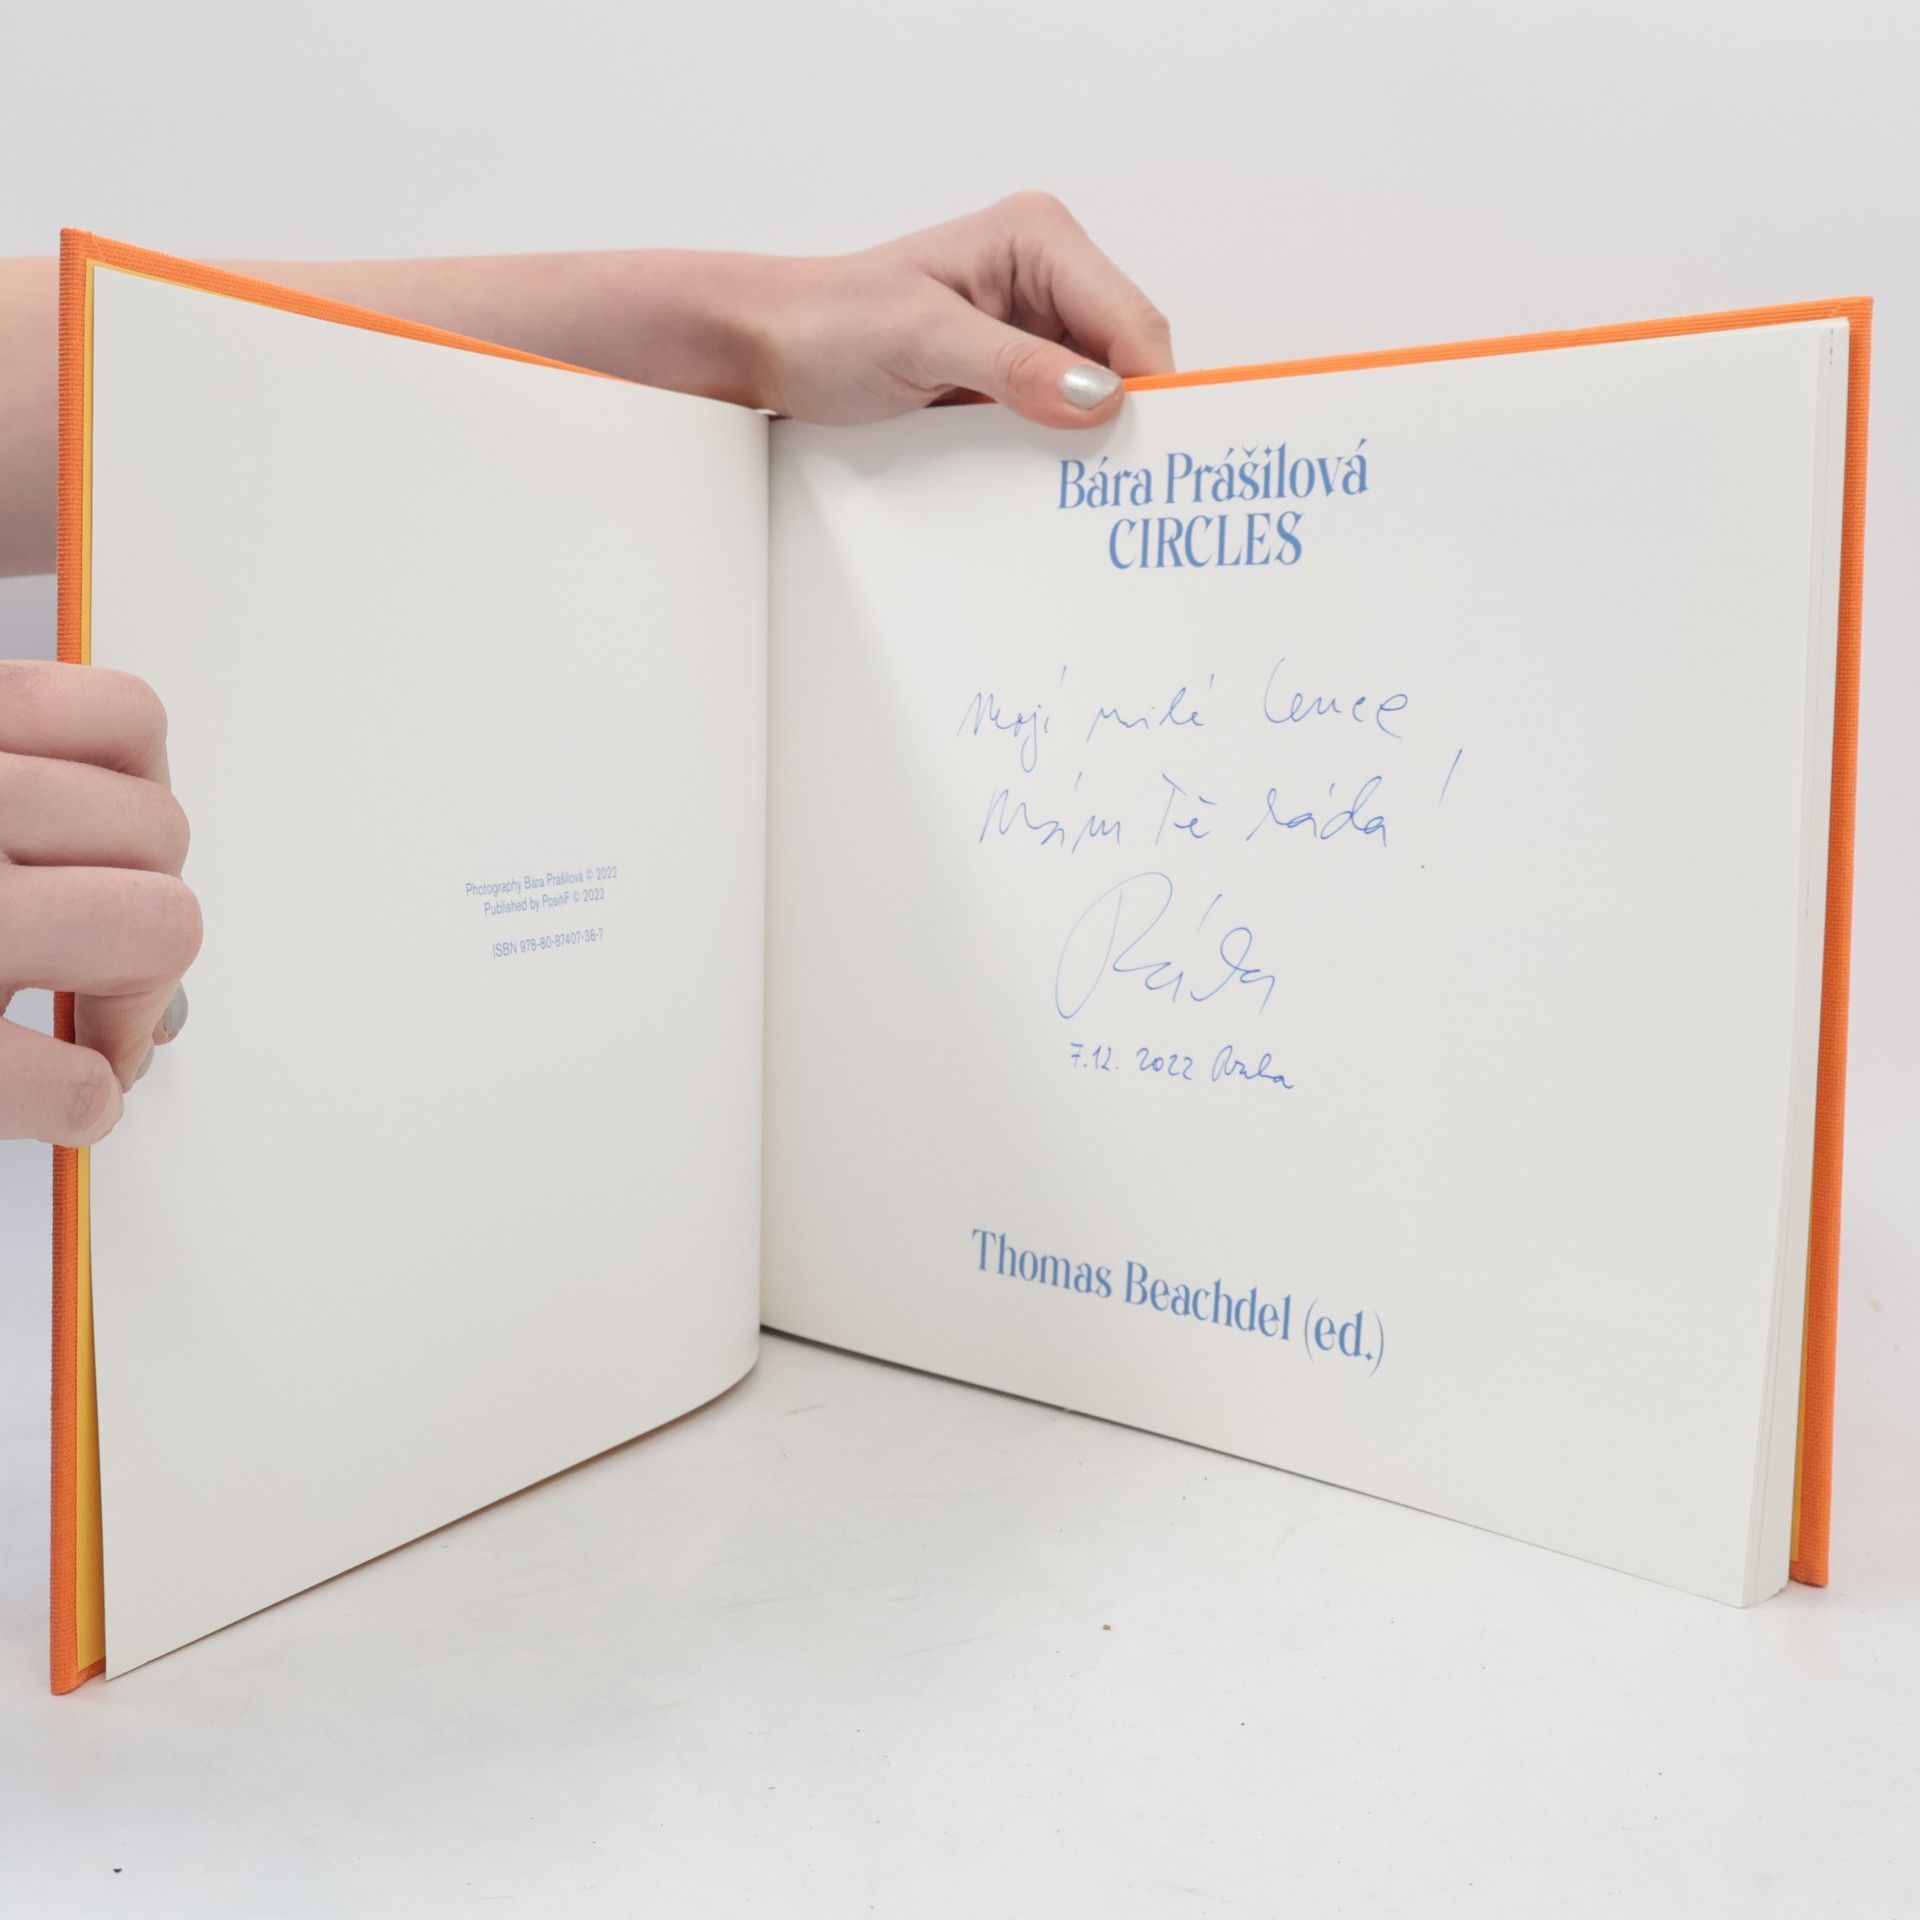 Photography Bára Prášilová © 2022
Published by PositiF © 2022
ISBN 978-80-87407-38-7
Bára Prášilová
CIRCLES
Mojí milé Lence
Mám Tě ráda!
Bára
7.12. 2022 Praha
Thomas Beachdel (ed.)